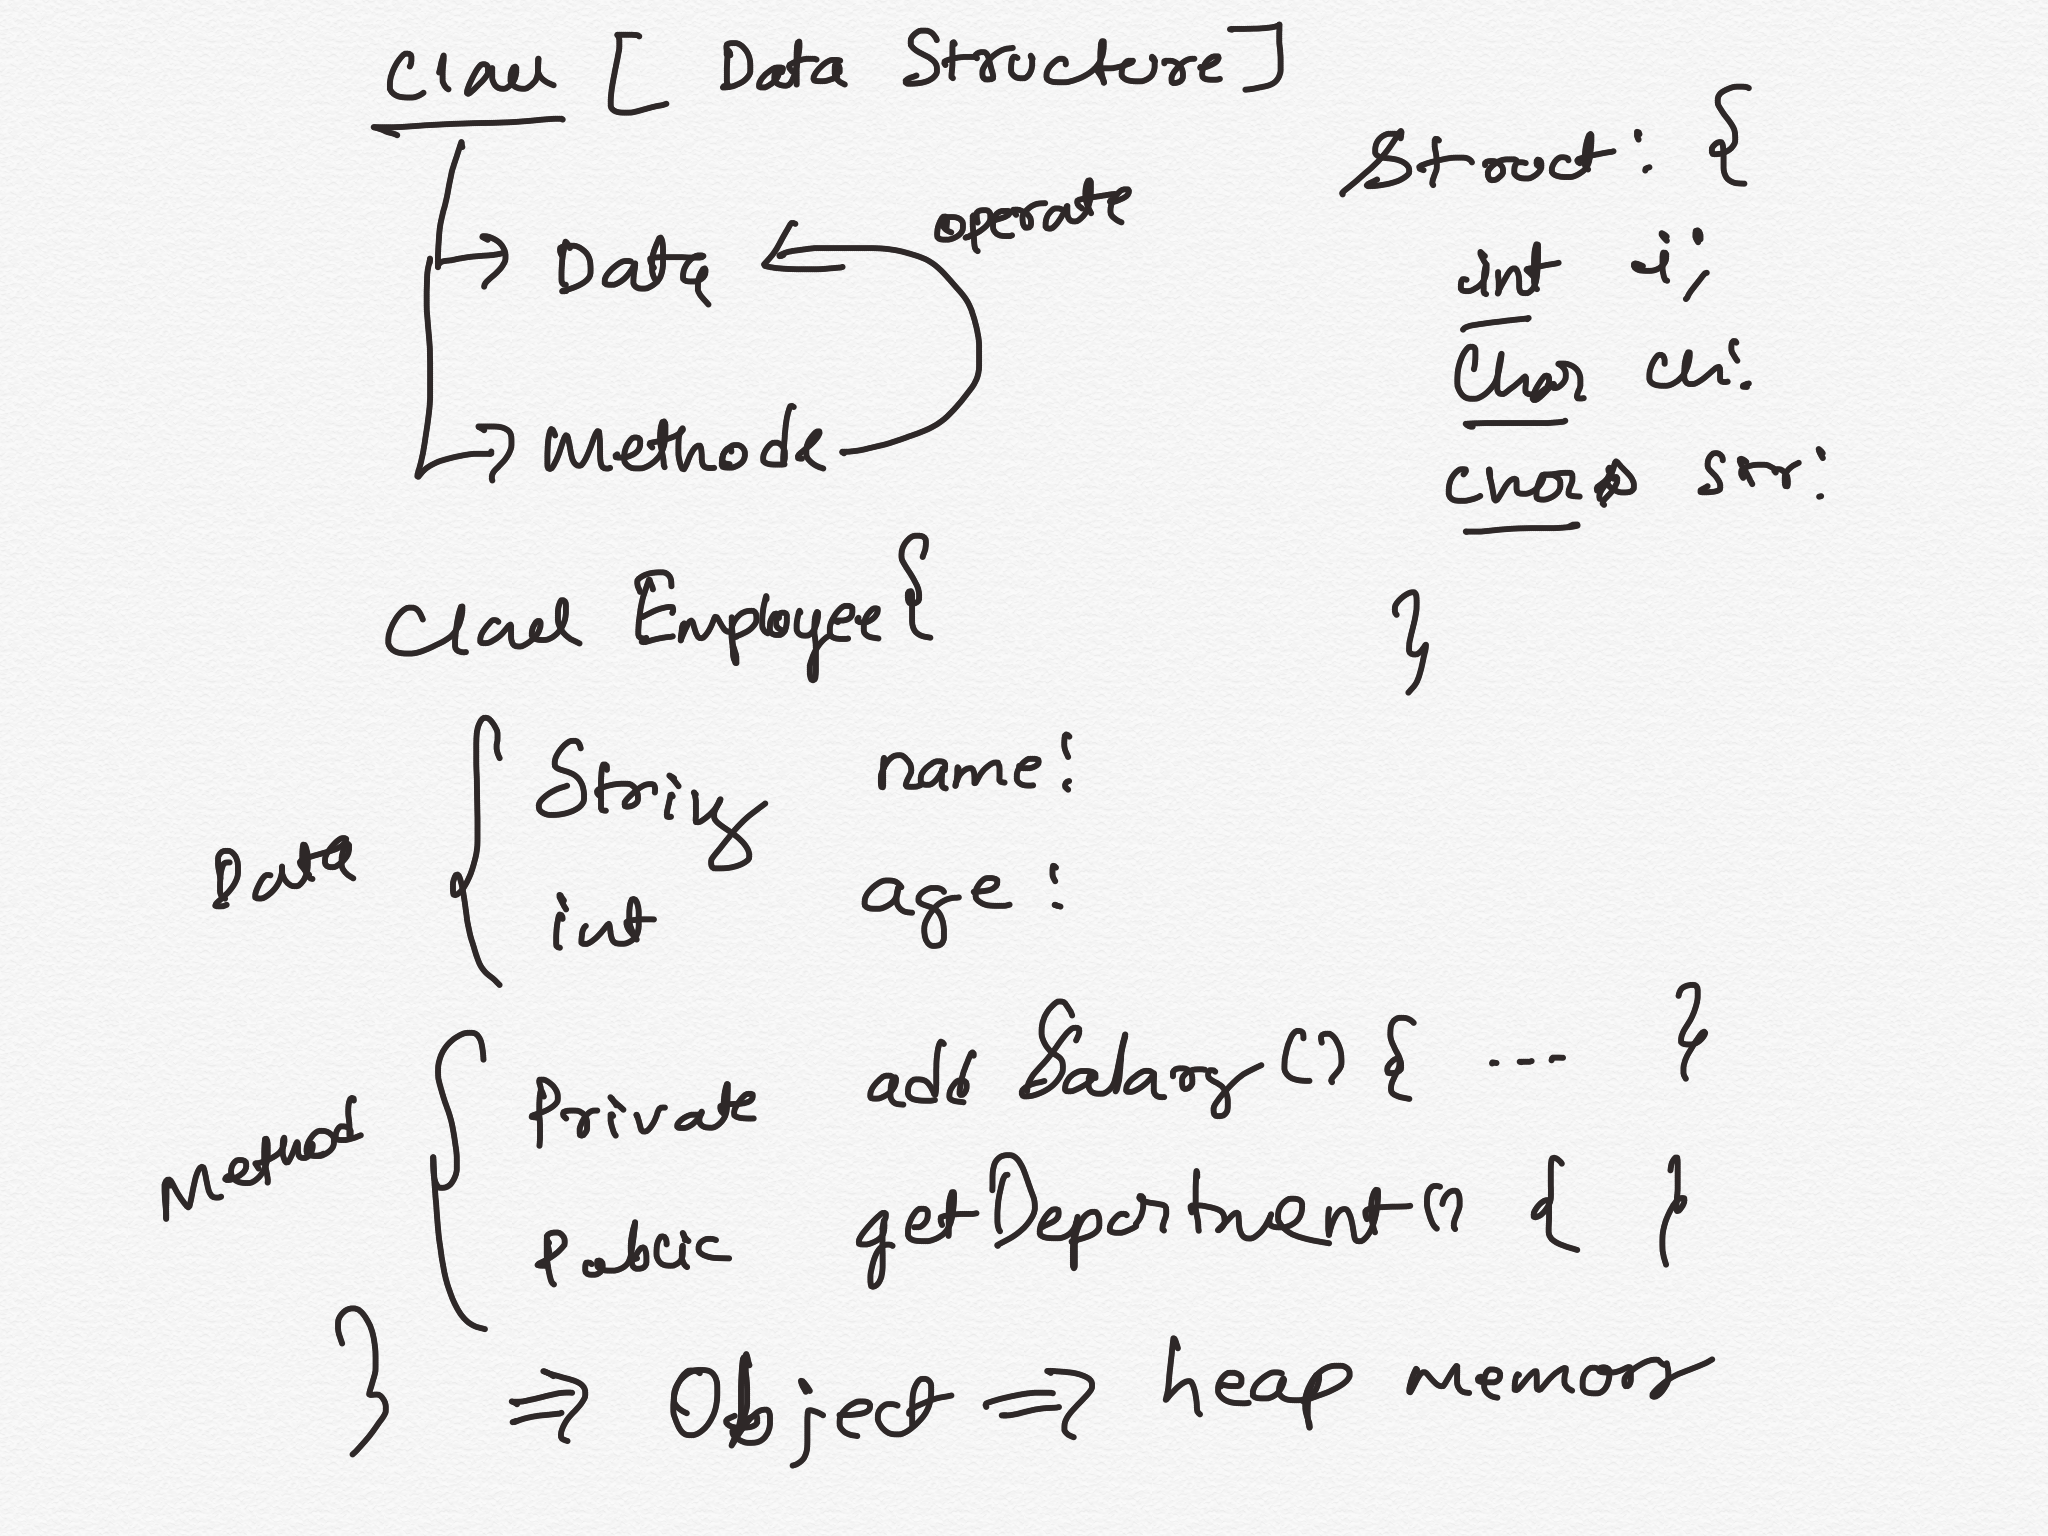 Class [ Data Structure ]
Struct: {
operate
Data
int i;
char ch;
Methods
char str;
Class Employee {
}
Data
String name;
int age;
Method
Private addSalary () { --- }
Public getDepartment () { }
} => Object => heap memory